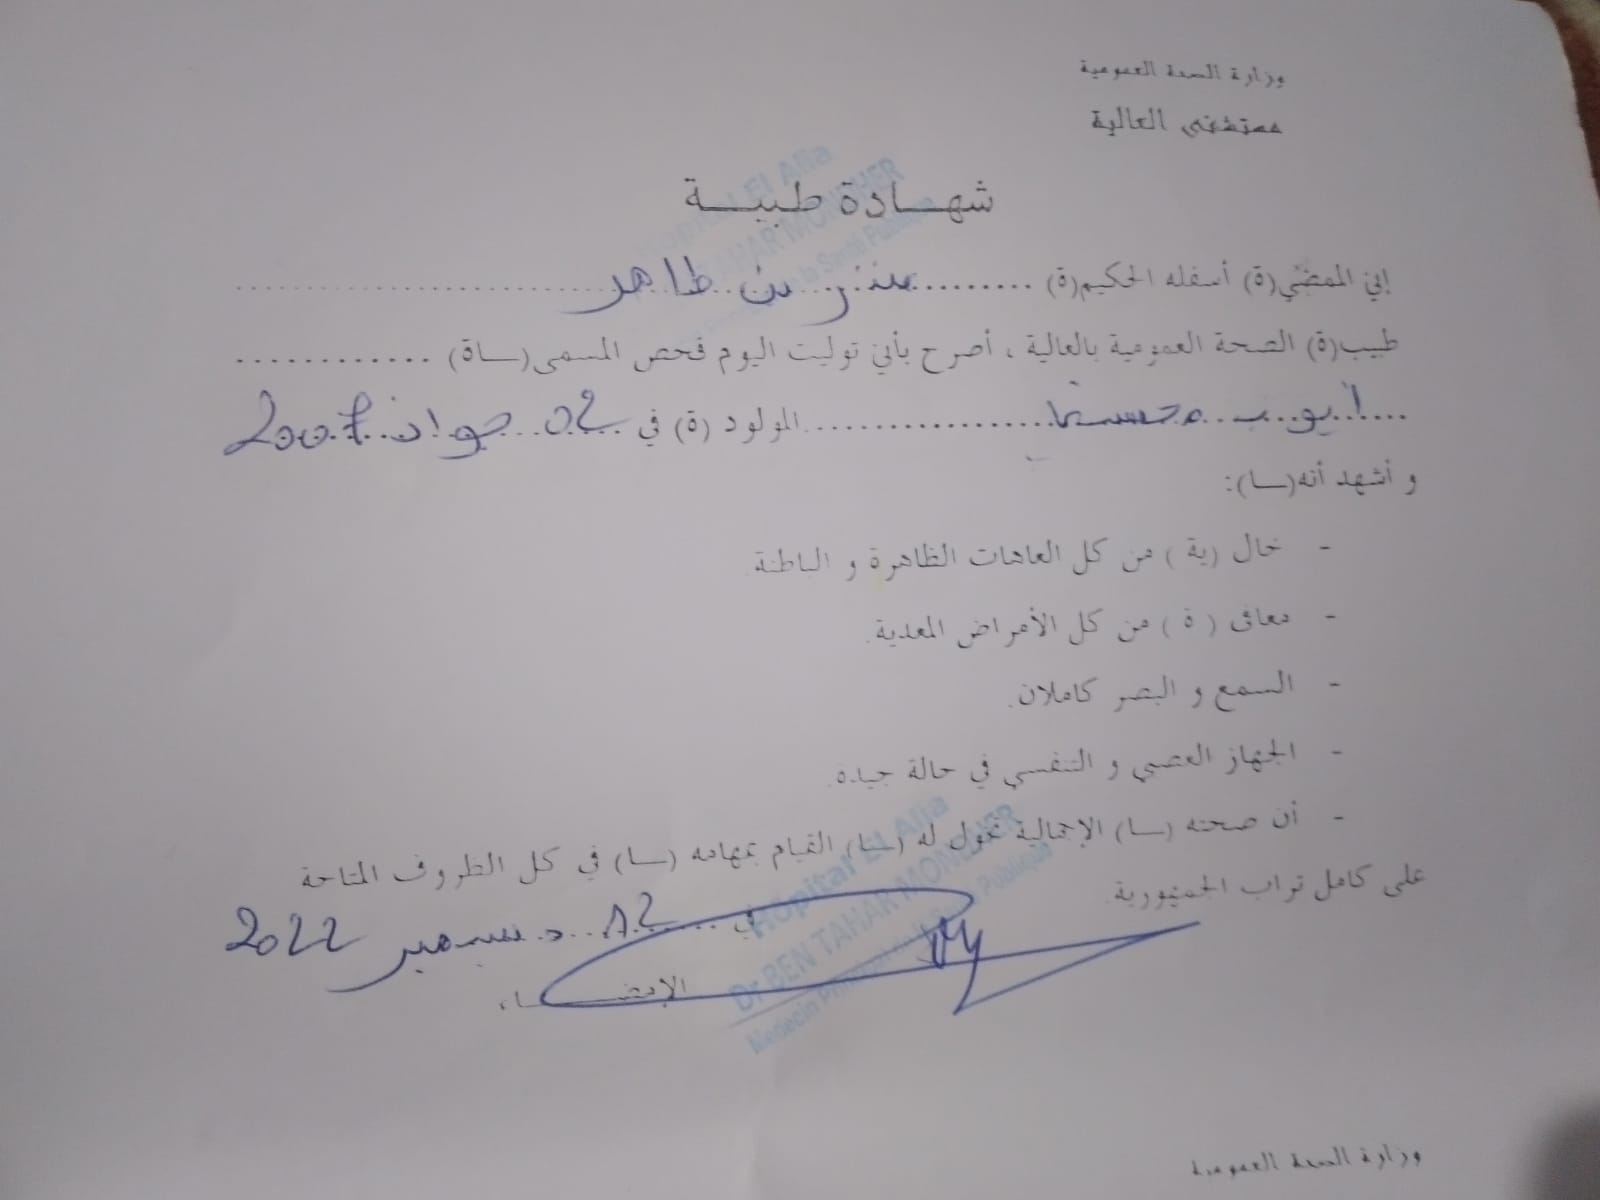 وزارة الصحة العمومية
مستشفى العالية
شهــادة طبيــة
Hopital El Alia
إني الممضي(ة) أسفله الحكيم(ة) ......... منذر بن طاهر .........
طبيب(ة) الصحة العمومية بالعالية ، أصرح بأني توليت اليوم فحص المسمى(ـاة) ............
أيوب ......... المولود (ة) في 02 جوان 2007
و أشهد أنه(ـا):
- خال (ية ) من كل العاهات الظاهرة و الباطنة.
- معافى ( ة ) من كل الأمراض المعدية.
- السمع و البصر كاملان.
- الجهاز العصبي و التنفسي في حالة جيدة.
- أن صحته (ـا) الإجمالية تخول له (ـا) القيام بمهامه (ـا) في كل الظروف المتاحة
على كامل تراب الجمهورية.
في 12 ديسمبر 2022
الإمضــاء
Hôpital El Alia
Dr BEN TAHAR MONCHER
Medecin Principal de la Santé Publique
وزارة الصحة العمومية